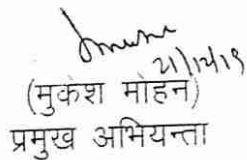 21/12/19
(मुकेश मोहन)
प्रमुख अभियन्ता